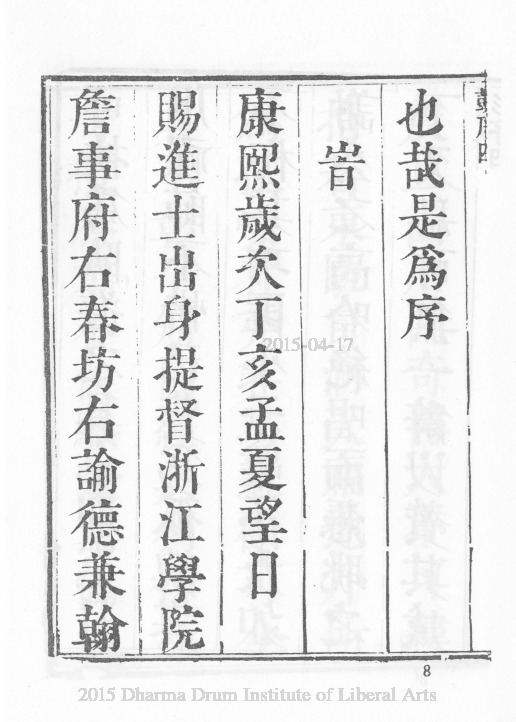 也哉是爲序
旹
康熙歲次丁亥孟夏望日
賜進士出身提督浙江學院
詹事府右春坊右諭德兼翰
2015-04-17
8
2015 Dharma Drum Institute of Liberal Arts